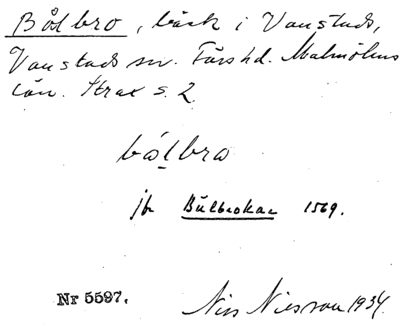 Bålbro, bäck i Vanstads,
Vanstads sn. Färs hd. Malmöhus
län. Strax s. 2
bålbro
jfr Bülbrokar 1569.
Nr 5597.
Nils Nilsson 1934.